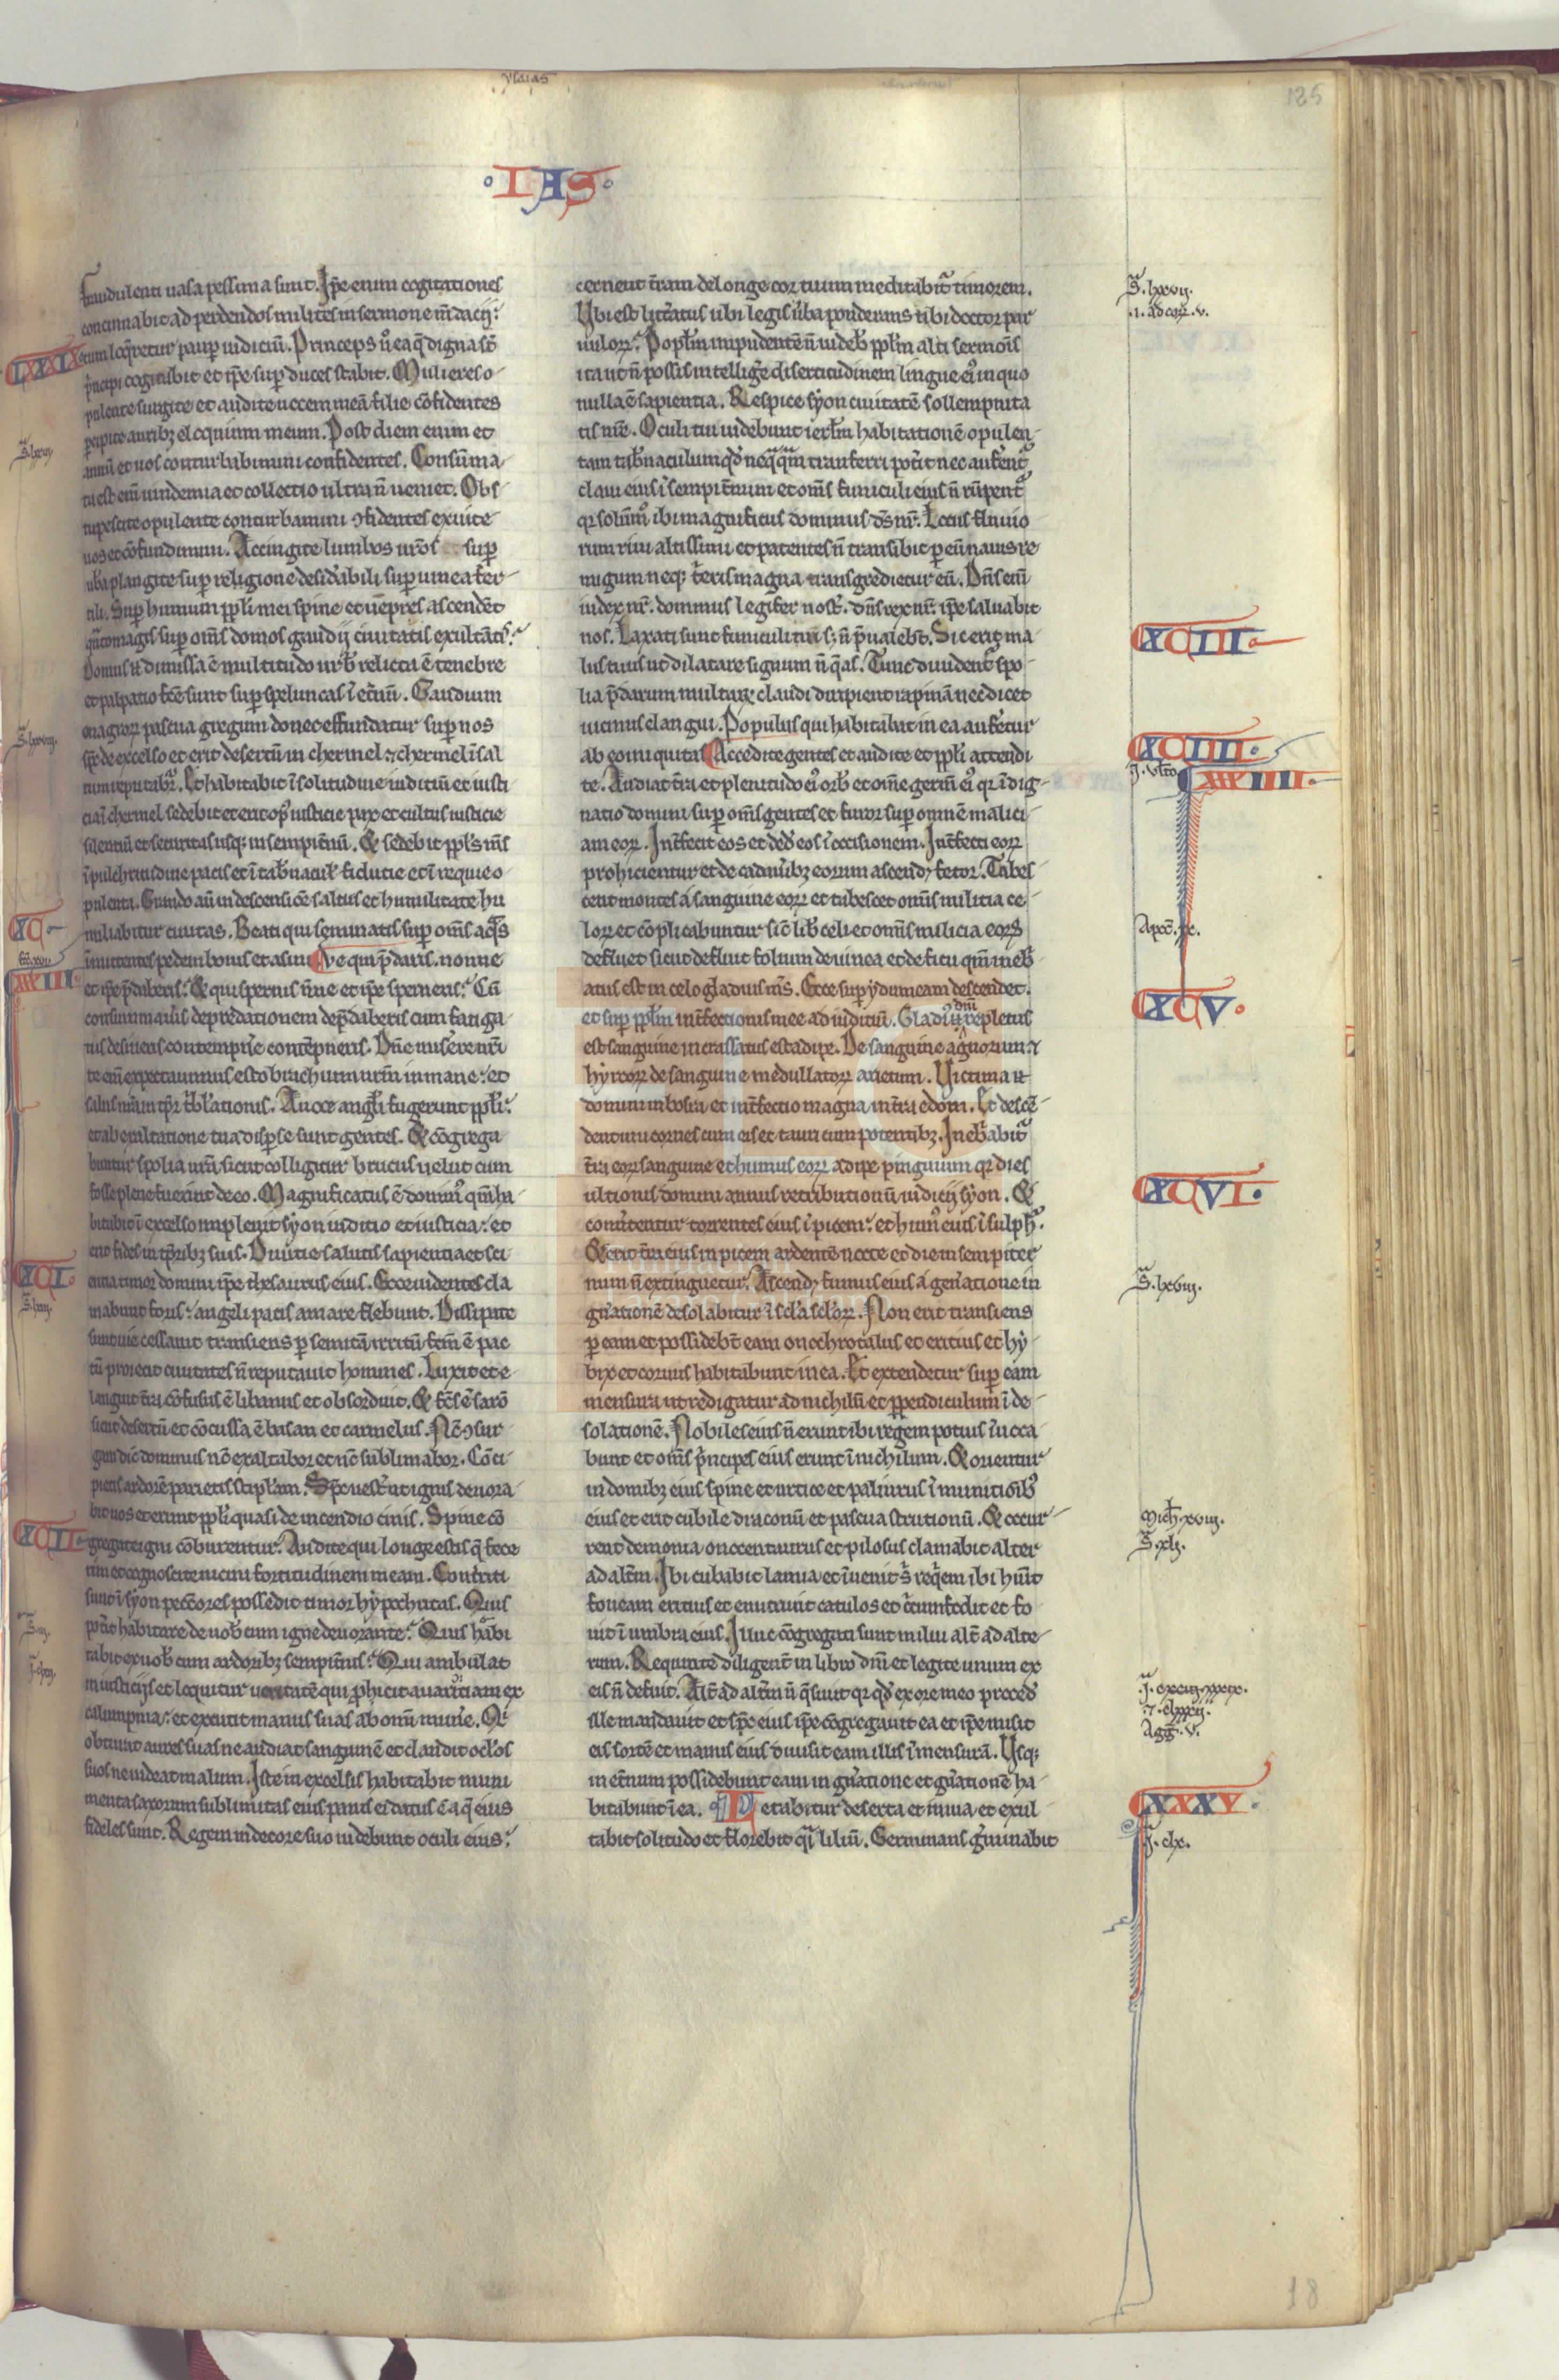 ysaias
185
· I A S ·
fraudulenti uasa pessima sunt. Ip̄e enim cogitationes
concinnabit ad perdendos mites in sermone m̄dacij:
cum loq̄retur paup̄ iudiciū. Princeps ū ea q̄ digna st̄
p̄ncipi cogitabit et ip̄e sup̄ duces stabit. Mulieres o-
pulente surgite et audite uocem meā filie cōfidentes
p̄cipite aurib; eloquium meum. Post diem enim et
annū et uos conturbabimini confidentes. Consūma-
ta est em̄ uindemia et collectio ultra n̄ ueniet. Obs-
tupescite opulente conturbamini ꝯfidentes exuite
uos et cōfundimini. Accingite lumbos ur̄os sup̄
ub̄a plangite sup̄ religione desid̄abili sup̄ uinea fer-
tili. Sup̄ humum pp̄li mei spine et uep̄res ascendēt
q̄nto magis sup̄ om̄s domos gaudij ciuitatis exultātis?
Domus .n. dimissa ē multitudo urb̄ relicta ē tenebre
et palpatio fc̄e sunt sup̄ speluncas ī et̄nū. Gaudium
onagroꝝ pascua gregum donec effundatur sup̄ nos
sp̄c de excelso et erit desertū in chermel. ⁊ chermel ī sal
tum reputabr̄. Et habitabit ī solitudine iuditiū et iusti
cia ī chermel sedebit et erit op̄ iusticie pax et cultus iusticie
silentiū et securitas usq; in sempit̄nū. Et sedebit pp̄ls m̄s
ī pulchritudine pacis et ī tab̄nacul̄ fidutie et ī requie o
pulenta. Grando aū in descensiōe saltus et humilitate hu
miliabitur ciuitas. Beati qui seminatis sup̄ om̄s aq̄s
īmittentes pedem bouis et asini Ve qui p̄daris. nonne
et ip̄e p̄daberis? Et qui spernis n̄ne et ip̄e sperneris? Cū
consummaueris depredationem dep̄daberis cum fatiga
tus desineris contempn̄e contēpneris. Dn̄e miserere nr̄i
te em̄ expectauimus esto brachium nr̄m in mane: et
salus nr̄a in tp̄r t̄bl̄ationis. A uoce angl̄i fugerunt pp̄li:
et ab exultatione tua disp̄se sunt gentes. Et cōgrega
buntur spolia ur̄a sicut colligitur brucus uelut cum
fosse plene fuerint de eo. Magnificatus ē domin⁹ qm̄ ha
bitabit ī excelso impleuit syon iuditio et iusticia: et
erit fides in tp̄rib; suis. Diuitie salutis sapientia et sci
entia timor domini ip̄e thesaurus eius. Ecce uidentes cla
mabunt foris: angeli pacis amare flebunt. Dissipate
sunt uie cessauit transiens p̄ semitā irritū fcm̄ ē pac
tū proiecit ciuitates n̄ reputauit homines. Luxit et e
languit t̄ra cōfusus ē libanus et obsorduit. Et fc̄s ē sarō
sicut desertū et cōcussa ē basan et carmelus. Nc̄ ꝯsur
gam dic̄ dominus nc̄ exaltabor et nc̄ sublimabor. Cōci
pietis ardorē parietis stipl̄am. Sp̄c uest̄ ut ignis deuora
bit uos et erunt pp̄li quasi de incendio cinis. Spine cō
gregate igni cōburentur. Audite qui longe estis q̄ fece
rim et cognoscite uicini fortitudinem meam. Contriti
sunt ī syon peccōres possedit timor hypochritas. Quis
pot̄it habitare de uob̄ cum igne deuorante? Quis habi
tabit ex uob̄ cum ardorib; sempit̄nis? Qui ambulat
in iusticijs et loquitur ueritatē qui p̄hicit auaritiam ex
calumpnia: et excutit manus suas ab om̄i mun̄e. Qi
obturat aures suas ne audiat sanguinē et claudit oc̄los
suos ne uideat malum. Iste in excelsis habitabit muni
menta saxorum sublimitas eius panis ei datus ē aq̄ eius
fideles sunt. Regem in decore suo uidebunt oculi eius:
LXXIX
XC
XXXIII
XCI.
XCII
cernent t̄ram de longe cor tuum meditabit̄ timorem.
Ubi est litt̄atus ubi legis ūba ponderans ubi doctor par
uuloꝝ? Popl̄m inpudentē n̄ uideb̄ pp̄lm alti sermōis
ita ut n̄ possis intelliḡe disertitudinem lingue ei⁹ in quo
nulla ē sapientia. Respice syon ciuitatē sollempnita
tis nr̄e. Oculi tui uidebunt ierl̄m habitationē opulen-
tam tab̄naculum qd̄ neq̄q̄m transferri pot̄it nec aufent̄
claui eius ī sempit̄num et om̄s funiculi eius n̄ rūpent̄
qr̄ solūm⁹ ibi magnificus dominus ds̄ nr̄. Locus fluuio
rum riui altissimi et patentes n̄ transibit p̄ eū nauis re
migum neq; t̄eris magna transgredietur eū. Dn̄s em̄
iudex nr̄. dominus legifer nost̄. dn̄s rex nr̄. ip̄e saluabit
nos. Laxati sunt funiculi tui: ⁊ n̄ p̄ualebt̄. Sic erit ma-
lus tuus ut dilatare signum n̄ q̄as. Tunc diuident̄ spo-
lia p̄darum multaꝝ claudi diripient rapinā nec dicet
uicinus elangui. Populus qui habitabit in ea auferetur
ab eo iniquitas Accedite gentes et audite et pp̄li attendi
te. Audiat t̄ra et plenitudo ei⁹ orb̄ et om̄e germ̄ ei⁹ qr̄ īdig-
natio domini sup̄ om̄s gentes et furor sup̄ omnē malici-
am eoꝝ. Int̄fecit eos et ded̄ eos ī occisionem. Int̄fecti eoꝝ
prohicientur et de cadau̅ib; eorum ascend; fetor. Tabes
cent montes a sanguine eoꝝ et tabescet omīs militia ce-
loꝝ et cōplicabuntur sic̄ lib̄ celi et omīs milicia eoꝝ
defluet sicut defluit folium de uinea et de ficu qm̄ ineb̄-
atus est in celo gladius m̄s. Ecce sup̄ ydumeam descendet.
et sup̄ pp̄lm int̄fectionis mee ad iuditiū. Gladi⁹ dn̄i repletus
est sanguine incrassatus est adipe. De sanguine agnorum ⁊
hyrcoꝝ de sanguine medullatoꝝ arietum. Uictima .n.
domini in bosra et int̄fectio magna in t̄ra edom. Et descē-
dent unicornes cum eis et tauri cum potentib;. Inebr̄abit̄
t̄ra eoꝝ sanguine et humus eoꝝ adipe pinguium qr̄ dies
ultionis domini annus retributionū iudicij syon. Et
conūtentur torrentes eius ī picem: et hum⁹ eius ī sulph̄.
Et erit t̄ra eius in picem ardentē nocte et die in sempiter
num n̄ extinguetur. Ascend; fumus eius a gen̄atione in
gn̄ationē desolabitur ī scl̄a scl̄oꝝ. Non erit transiens
p̄ eam et possidebt̄ eam onochrotalus et ericius et hy-
bix et coruus habitabunt in ea. Et extendetur sup̄ eam
mensura ut redigatur ad nichilū et p̄pendiculum ī de-
solationē. Nobiles eius n̄ erunt ibi regem potius īuoca
bunt et om̄s p̄ncipes eius erunt ī nichilum. Et orientur
in domib; eius spine et urtice et paliurus ī munitiōib⁹
eius et erit cubile draconū et pascua strutionū. Et occur-
rent demonia onocentaurus et pilosus clamabit alter
ad alt̄m. Ibi cubabit lamia et īuenit s̄ req̄em ibi hūit
foueam ericius et enutriuit catulos et circumfodit et fo
uit ī umbra eius. Illuc cōgregati sunt milui alt̄ ad alte-
rum. Requirite diligent̄ in libro dn̄i et legite unum ex
eis n̄ defuit. Alt̄ ad alt̄m n̄ q̄siuit qr̄ qd̄ ex ore meo proced̄
ille mandauit et sp̄c eius ip̄e cōgregauit ea et ip̄e misit
eis sortē et manus eius diuisit eam illis ī mensurā. Usq;
in et̄num possidebunt eam in gn̄atione et gn̄ationē ha-
bitabunt ī ea. Letabitur deserta et inuia et exul
tabit solitudo et florebit q̄i liliū. Germinans g̅minabit
XCIII
XCIIII.
XXXIIII.
XCV.
XCVI.
XXXV.
18